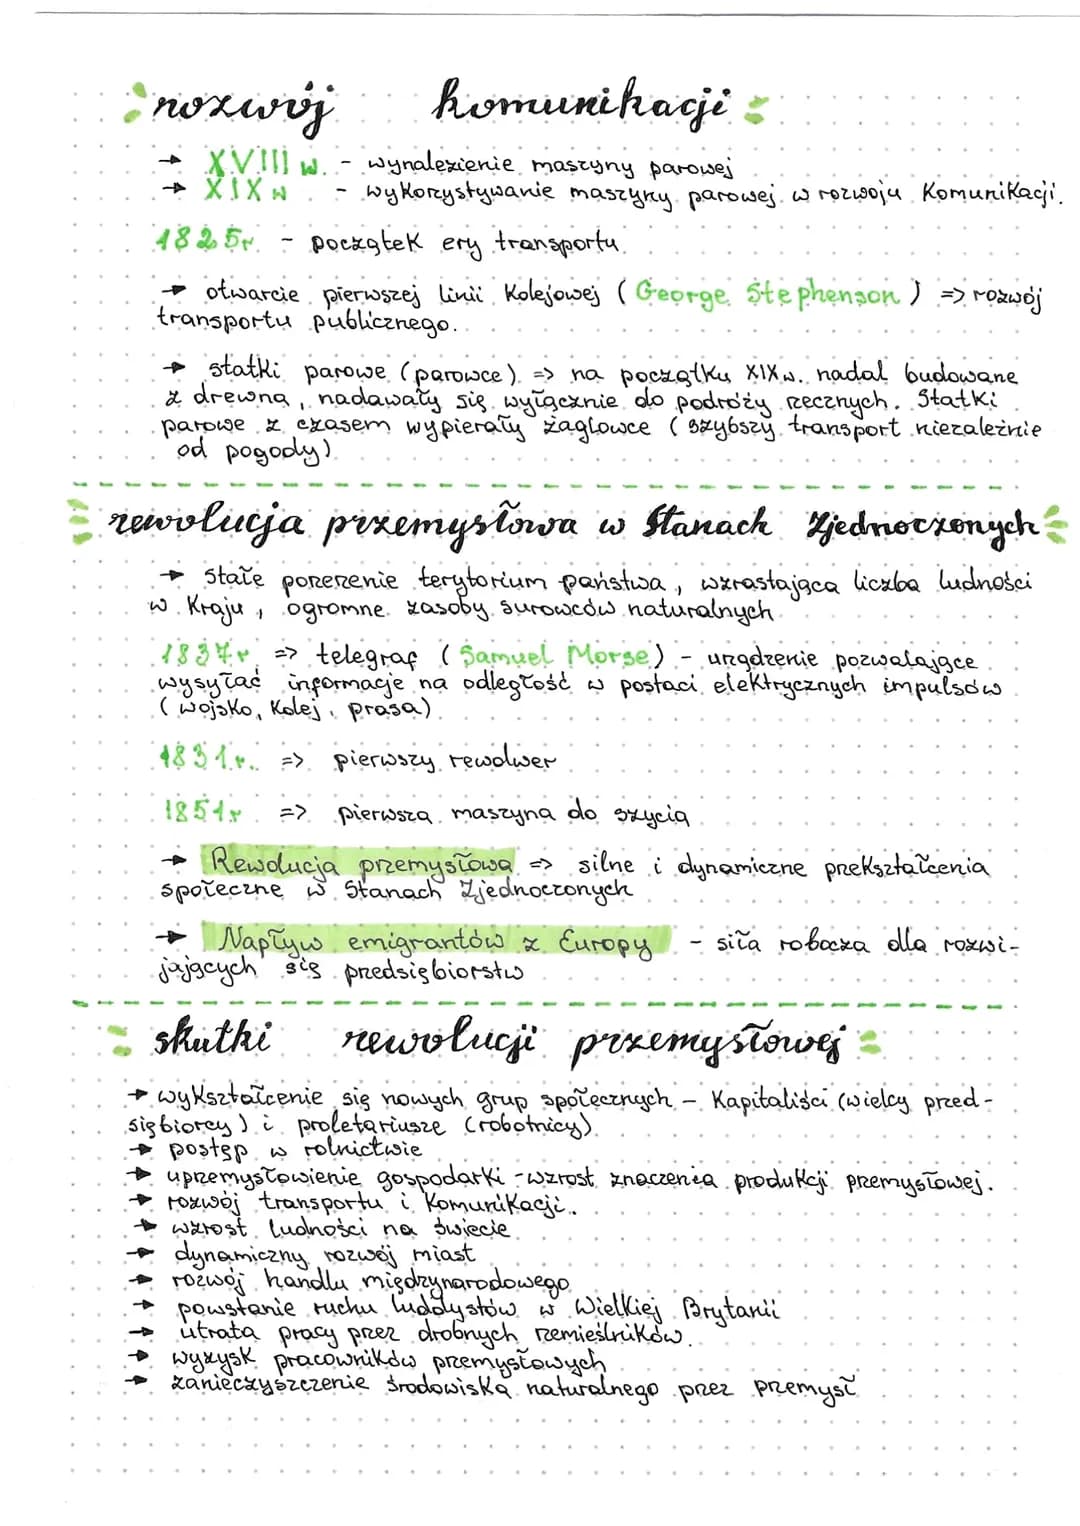 rozwój komunikacji
→ XVIII w. - wynalezienie maszyny parowej
→ XIX w - wykorzystywanie maszyny parowej w rozwoju komunikacji.
1825r - początek ery transportu
→ otwarcie pierwszej linii kolejowej (George Stephenson) => rozwój
transportu publicznego.
→ statki parowe (parowce) => na początku XIX w. nadal budowane
z drewna, nadawały się wyłącznie do podróży rzecznych. Statki
parowe z czasem wypierały żaglowce (szybszy transport niezależnie
od pogody)
rewolucja przemysłowa w Stanach Zjednoczonych
→ Stałe poszerzenie terytorium państwa, wzrastająca liczba ludności
w kraju, ogromne zasoby surowców naturalnych
1837r => telegraf (Samuel Morse) - urządzenie pozwalające
wysyłać informacje na odległość w postaci elektrycznych impulsów
(wojsko, kolej, prasa)
1831r. => pierwszy rewolwer
1851r => pierwsza maszyna do szycia
→ Rewolucja przemysłowa => silne i dynamiczne przekształcenia
społeczne w Stanach Zjednoczonych
→ Napływ emigrantów z Europy - siła robocza dla rozwi-
jających się przedsiębiorstw
skutki rewolucji przemysłowej
→ wykształcenie się nowych grup społecznych - kapitaliści (wielcy przed-
siębiorcy) i proletariusze (robotnicy)
→ postęp w rolnictwie
→ uprzemysłowienie gospodarki - wzrost znaczenia produkcji przemysłowej.
→ rozwój transportu i komunikacji.
→ wzrost ludności na świecie
→ dynamiczny rozwój miast
→ rozwój handlu międzynarodowego
→ powstanie ruchu luddystów w Wielkiej Brytanii
→ utrata pracy przez drobnych rzemieślników.
→ wyzysk pracowników przemysłowych
→ zanieczyszczenie środowiska naturalnego przez przemysł